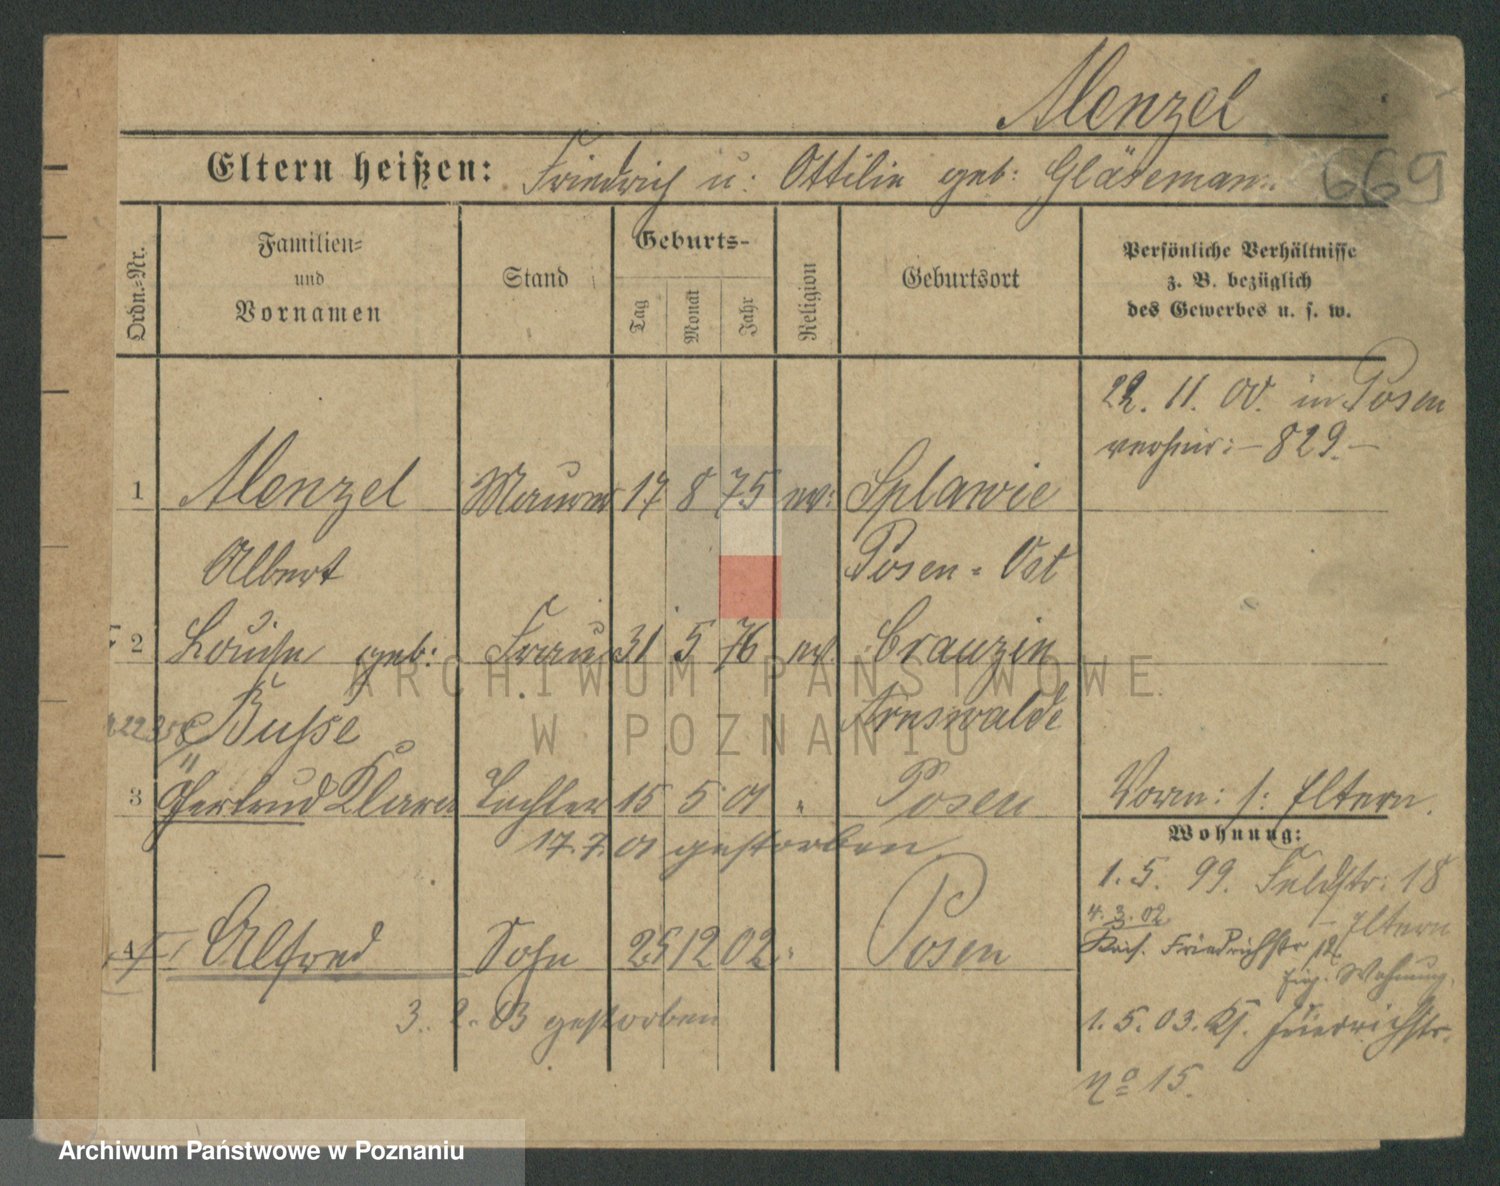 Menzel
Eltern heißen: Friedrich u. Ottilie geb: Gläsemann
669
Ordn.-Nr.
Familien-
und
Vornamen
Stand
Geburts-
Tag
Monat
Jahr
Religion
Geburtsort
Persönliche Verhältnisse
z. B. bezüglich
des Gewerbes u. s. w.
22. 11. 00. in Posen
verheir: – 829. –
1 Menzel Maurer 17 8 75 ev: Splawie
Albert Posen-Ost
2 Louise geb: Frau 31 5 76 ev. Cranzin
Busse Arnswalde
3 Gertrud Klara Tochter 15 5 01 " Posen
Vorm: s: Eltern.
17.7.01 gestorben
Wohnung:
1. 5. 99. Feldstr: 18
– Eltern
4. 3. 02
Kais. Friedrichstr 12
Eig. Wohnung.
4 Alfred Sohn 25 12 02 " Posen
3. 2. 03 gestorben
1. 5. 03. Kf. Friedrichstr.
No 15.
ARCHIWUM PAŃSTWOWE
W POZNANIU
Archiwum Państwowe w Poznaniu